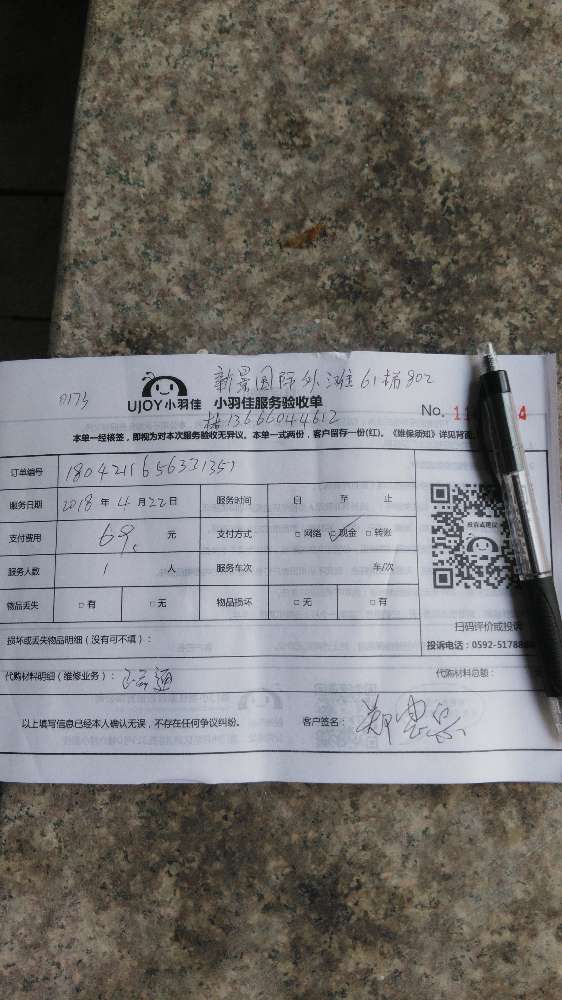 新景国际外滩61梯802
0173
UJOY小羽佳 小羽佳服务验收单
13666044612
No. 11 4
本单一经接签，即视为对本次服务验收无异议。本单一式两份，客户留存一份(红)。《维保须知》详见背面
订单编号
服务日期 2018 年 4 月 22 日 服务时间 自 至 止
支付费用 69 元 支付方式 □ 网络 □ 现金 □ 转账
投诉或建议
服务人数 1 人 服务车次 车/次
物品丢失 □ 有 □ 无 物品损坏 □ 无 □ 有
扫码评价或投诉
损坏或丢失物品明细（没有可不填）：
投诉电话：0592-517888
代购材料明细（维修业务）：
代购材料总额：
以上填写信息已经本人确认无误，不存在任何争议纠纷。 客户签名：